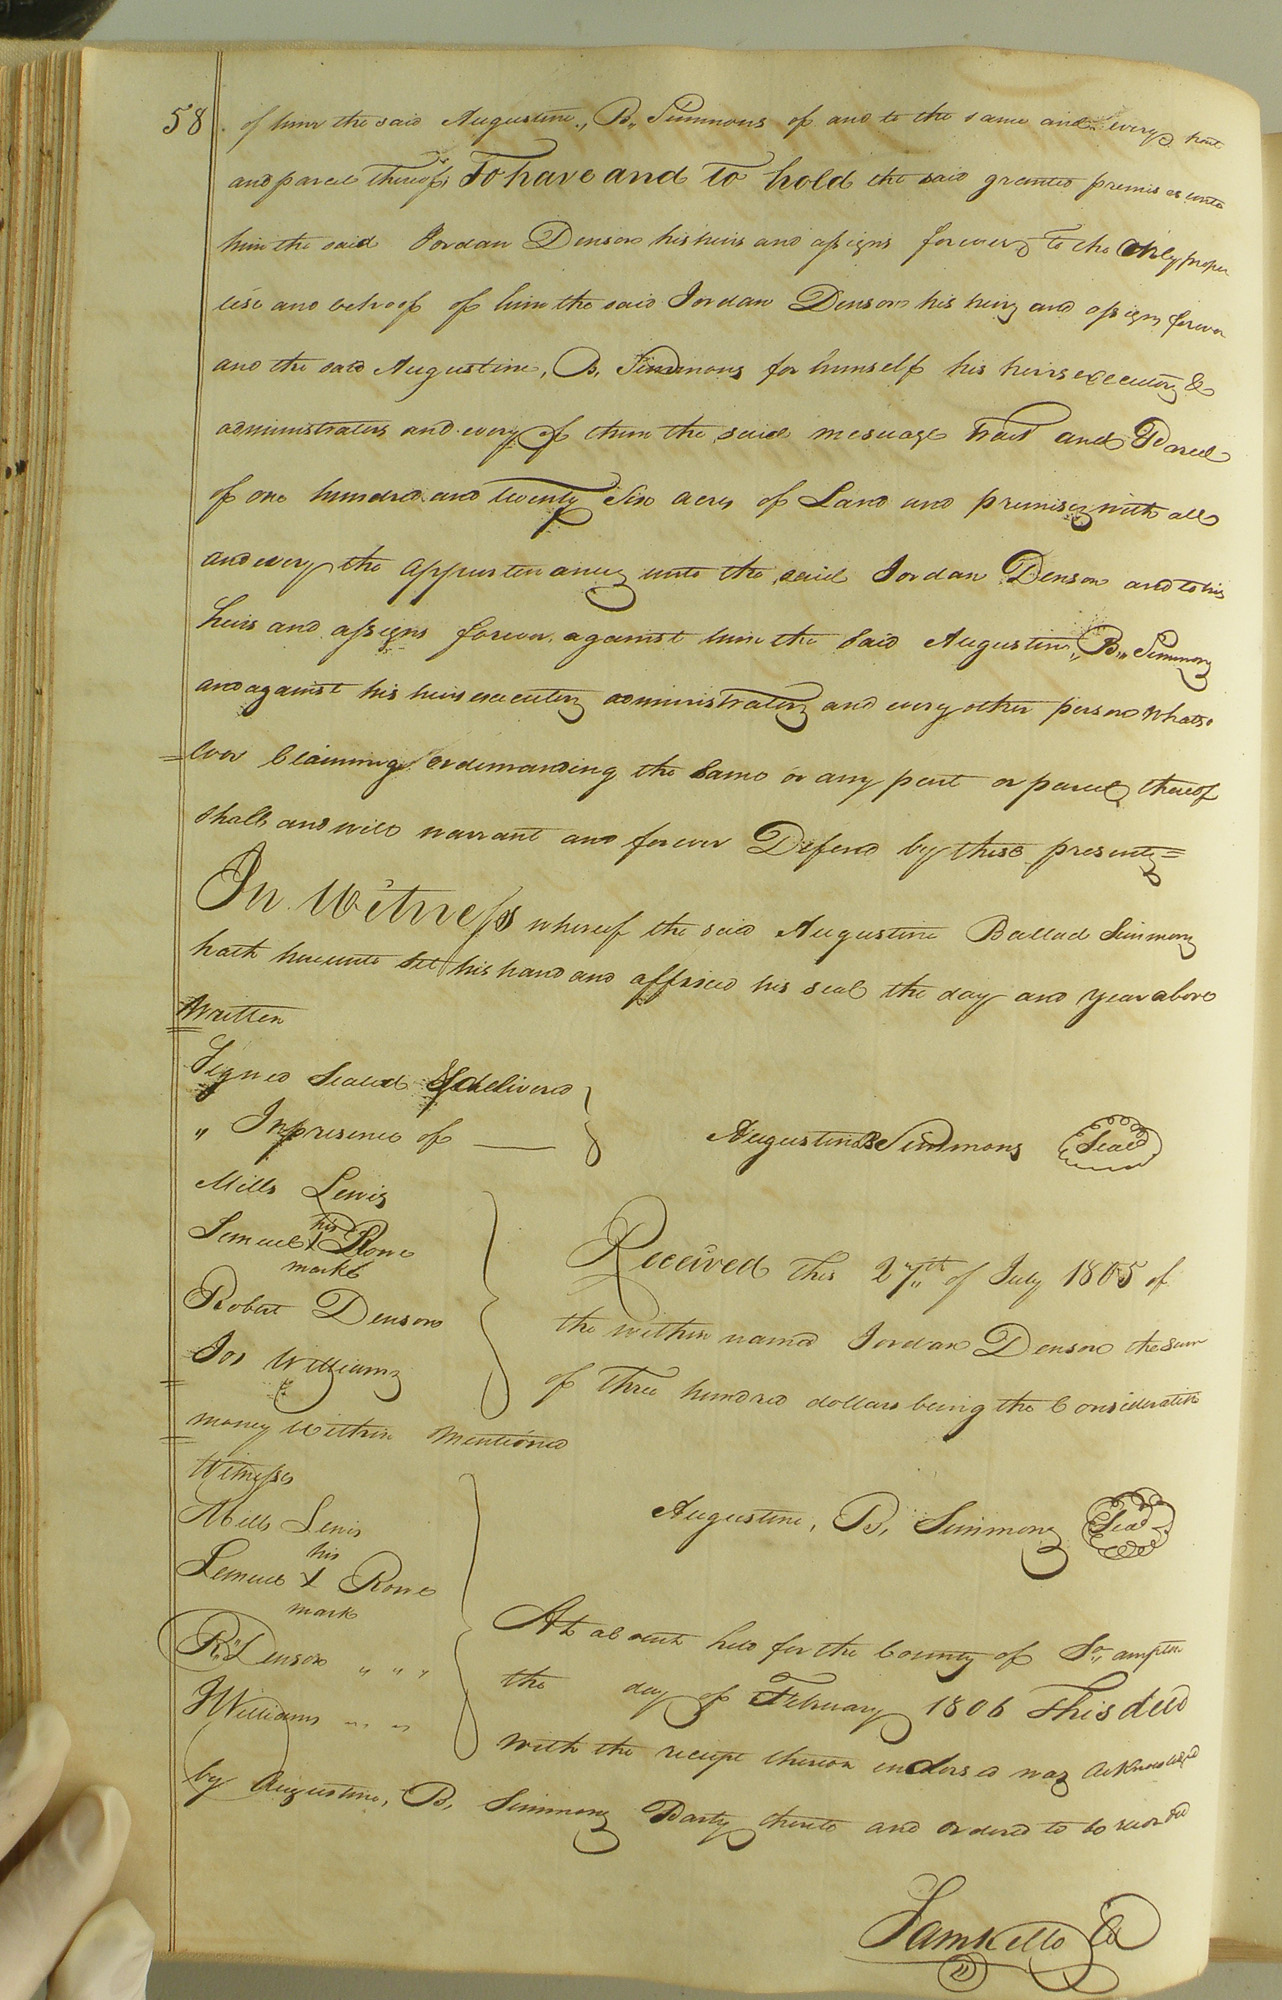 58
of him the said Augustine,, B,, Simmons of and to the same and every part
and parcel thereof, To have and To hold the said granted premises unto
him the said Jordan Denson his heirs and assigns forever to the only proper
use and behoof of him the said Jordan Denson his heirs and assigns forever
and the said Augustine, B, Simmons for himself his heirs executors &
administrators and every of them the said mesuage Tract and Parcel
of one hundred and twenty Six acres of Land and premises with all
and every the appurtenances unto the said Jordan Denson and to his
heirs and assigns forever against him the said Augustine,, B,, Simmons
and against his heirs executors administrators and every other person whatso
=ever Claiming or demanding the Same or any part or parcel thereof
Shall and will warrant and forever Defend by these presents=
In Witness whereof the said Augustine Ballad Simmons
hath hereunto Set his hand and affixed his seal the day and year above
Written
Signed Sealed & delivered
,, In presence of
Augustine B Simmons Seal
Mills Lewis
his
Lemuel X Rowe
mark
Robert Denson
Jos Williams
Received this 27,,th of July 1805 of
the within named Jordan Denson the sum
of Three hundred dollars being the Consideration
money Within Mentioned
Witness
Mills Lewis
his
Lemuel X Rowe
mark
R,, Denson ,, ,, ,,
J Williams ,, ,,
Augustine, B, Simmons Seal
At a Court held for the County of So,,ampton
the day of February 1806 This deed
with the receipt thereon endorsed was acknowledged
by Augustine, B, Simmons Party thereto and ordered to be recorded
Sam Kello Cl